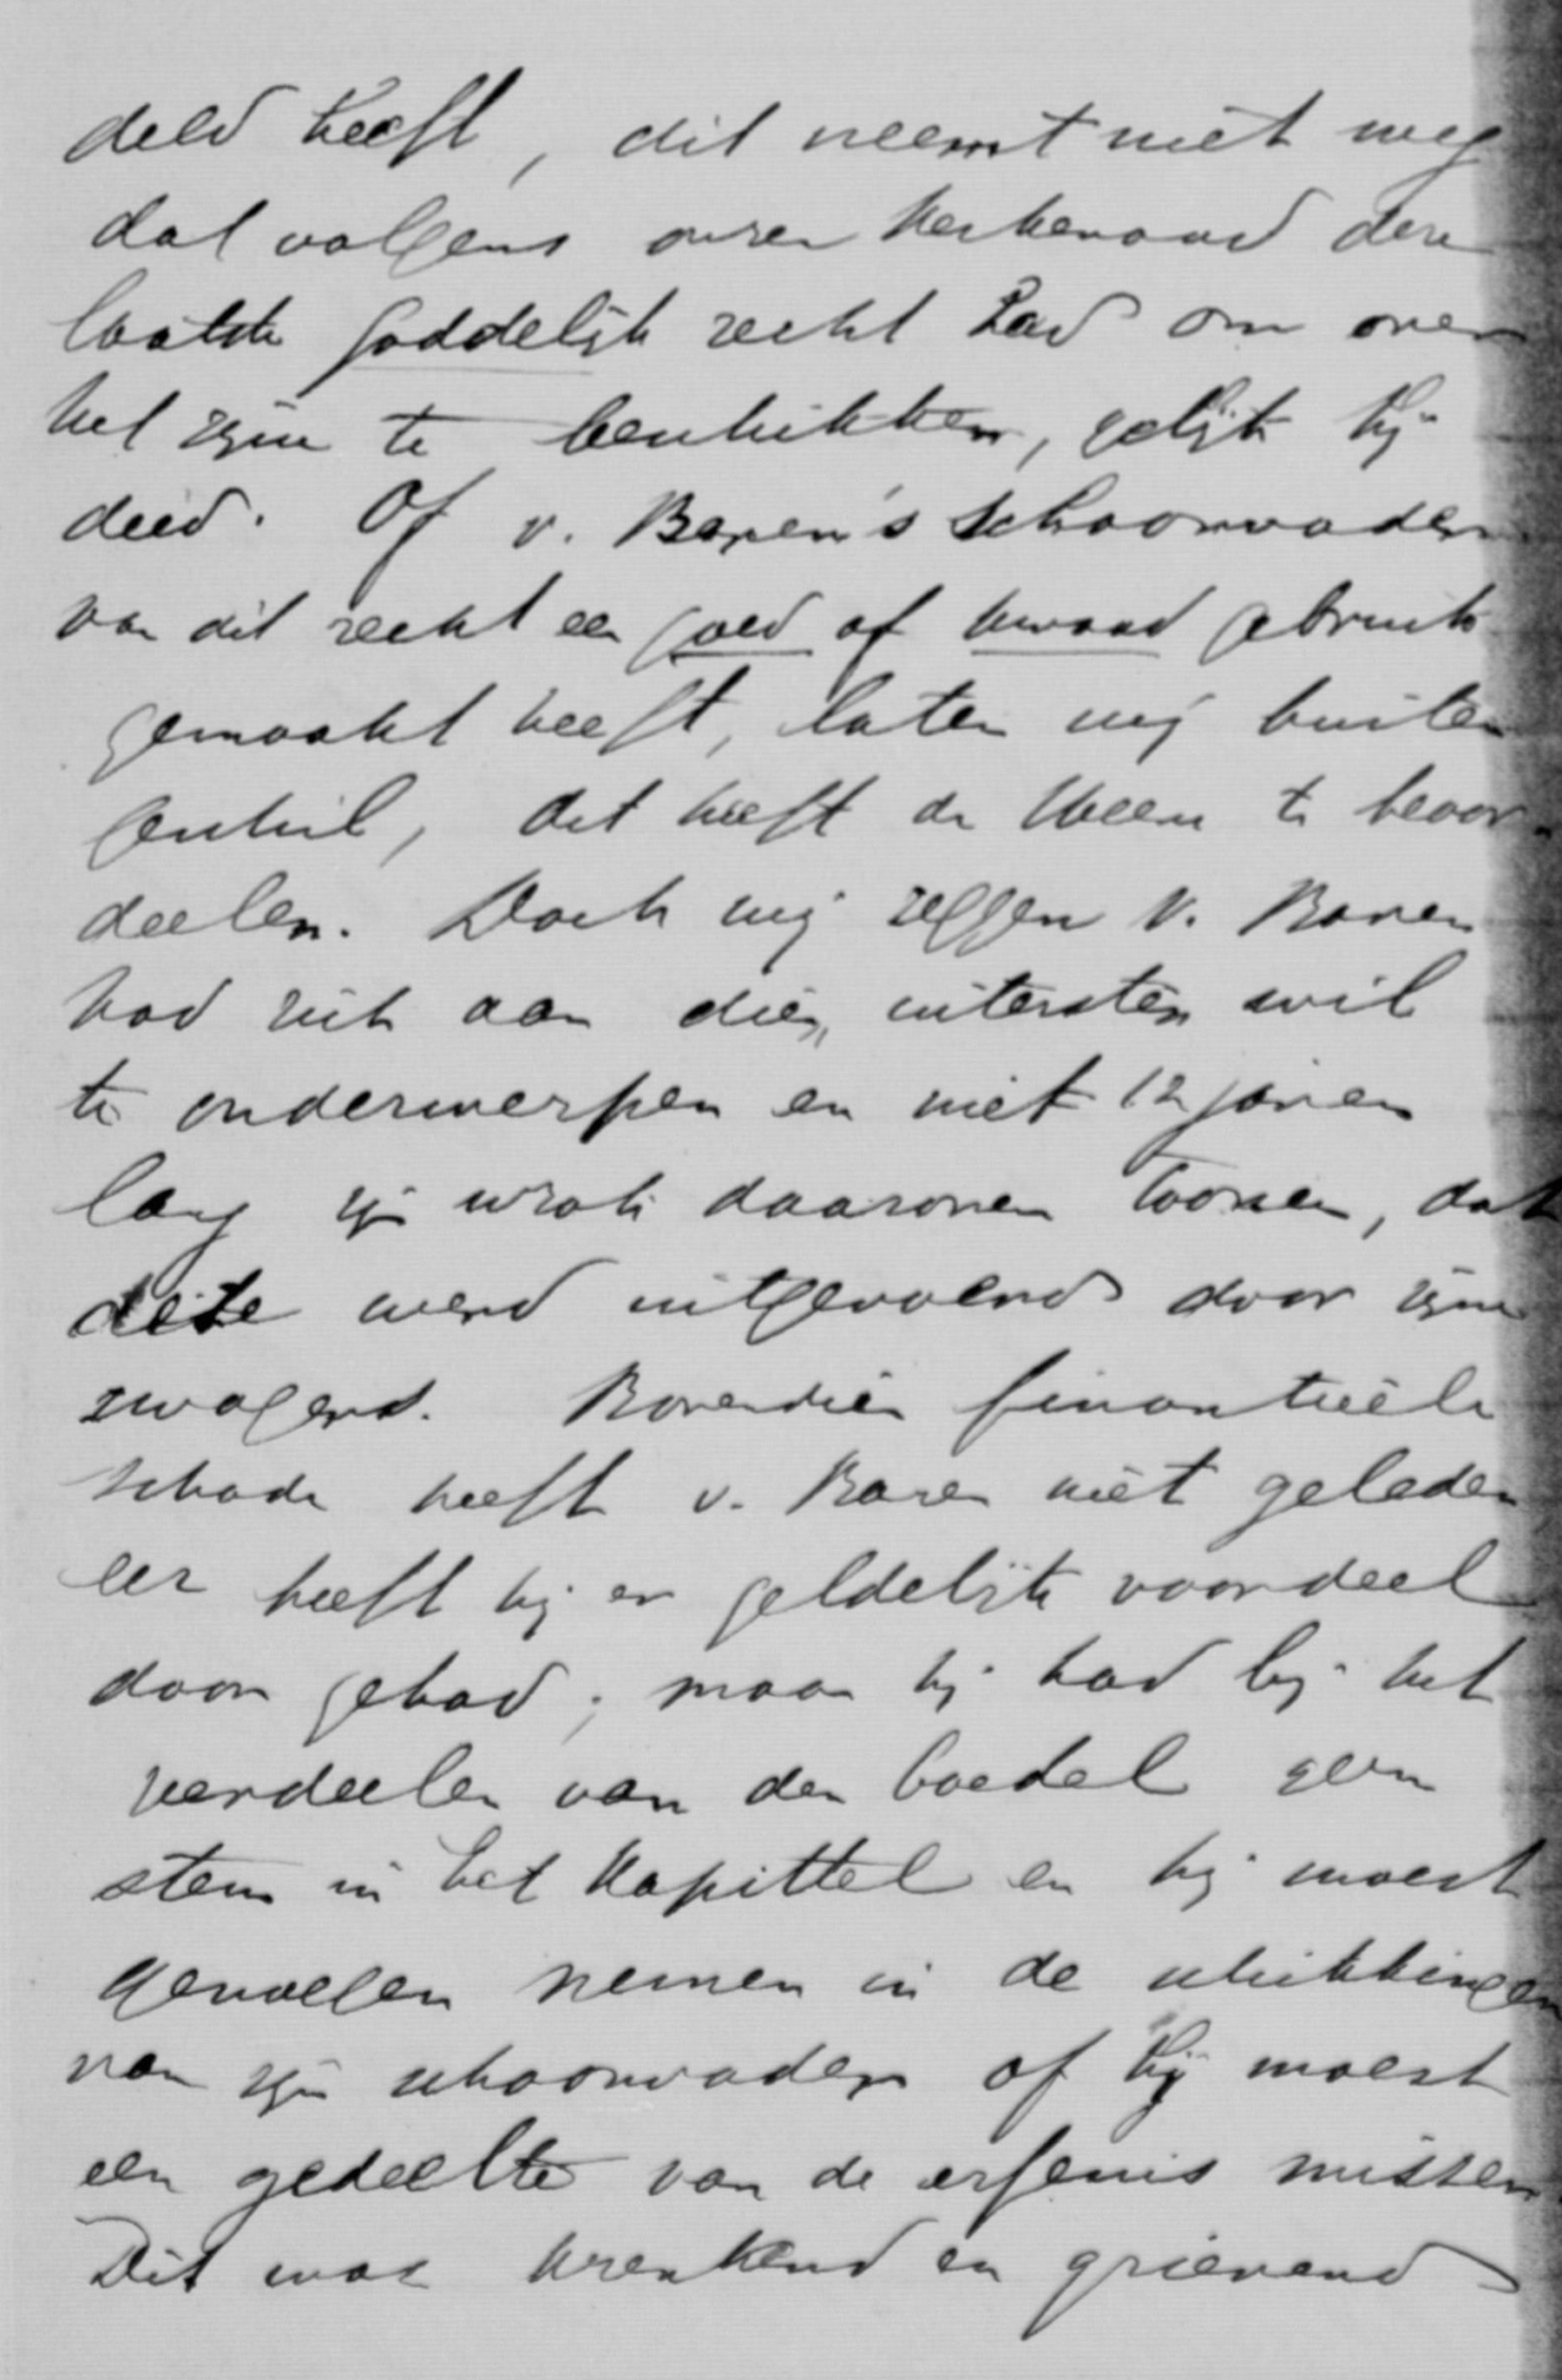 deld heeft, dit neemt niet weg
dat volgens onzen kerkeraad deze
laatste goddelijk recht had om over
het zijne te beschikken, gelijk hij
deed. Of v. Baren's schoonvader
van dit recht een goed of kwaad gebruik
gemaakt heeft, laten wij buiten
geschil, dit heeft de Heere te beoor-
deelen. Doch wij zeggen v. Baren
had zich aan dien uitersten wil
te onderwerpen en niet 12 jaren
lang zijn wrok daarover toonen, dat
deze werd uitgevoerd door zijne
zwagers. Bovendien finantieële
schade heeft v. Baren niet geleden
eer heeft hij er geldelijk voordeel
door gehad; maar hij had bij het
verdeelen van den boedel geen
stem in het kapittel en hij moest
genoegen nemen in de schikkingen
van zijn schoonvader of hij moest
een gedeelte van de erfenis missen
Dit was krenkend en grievend